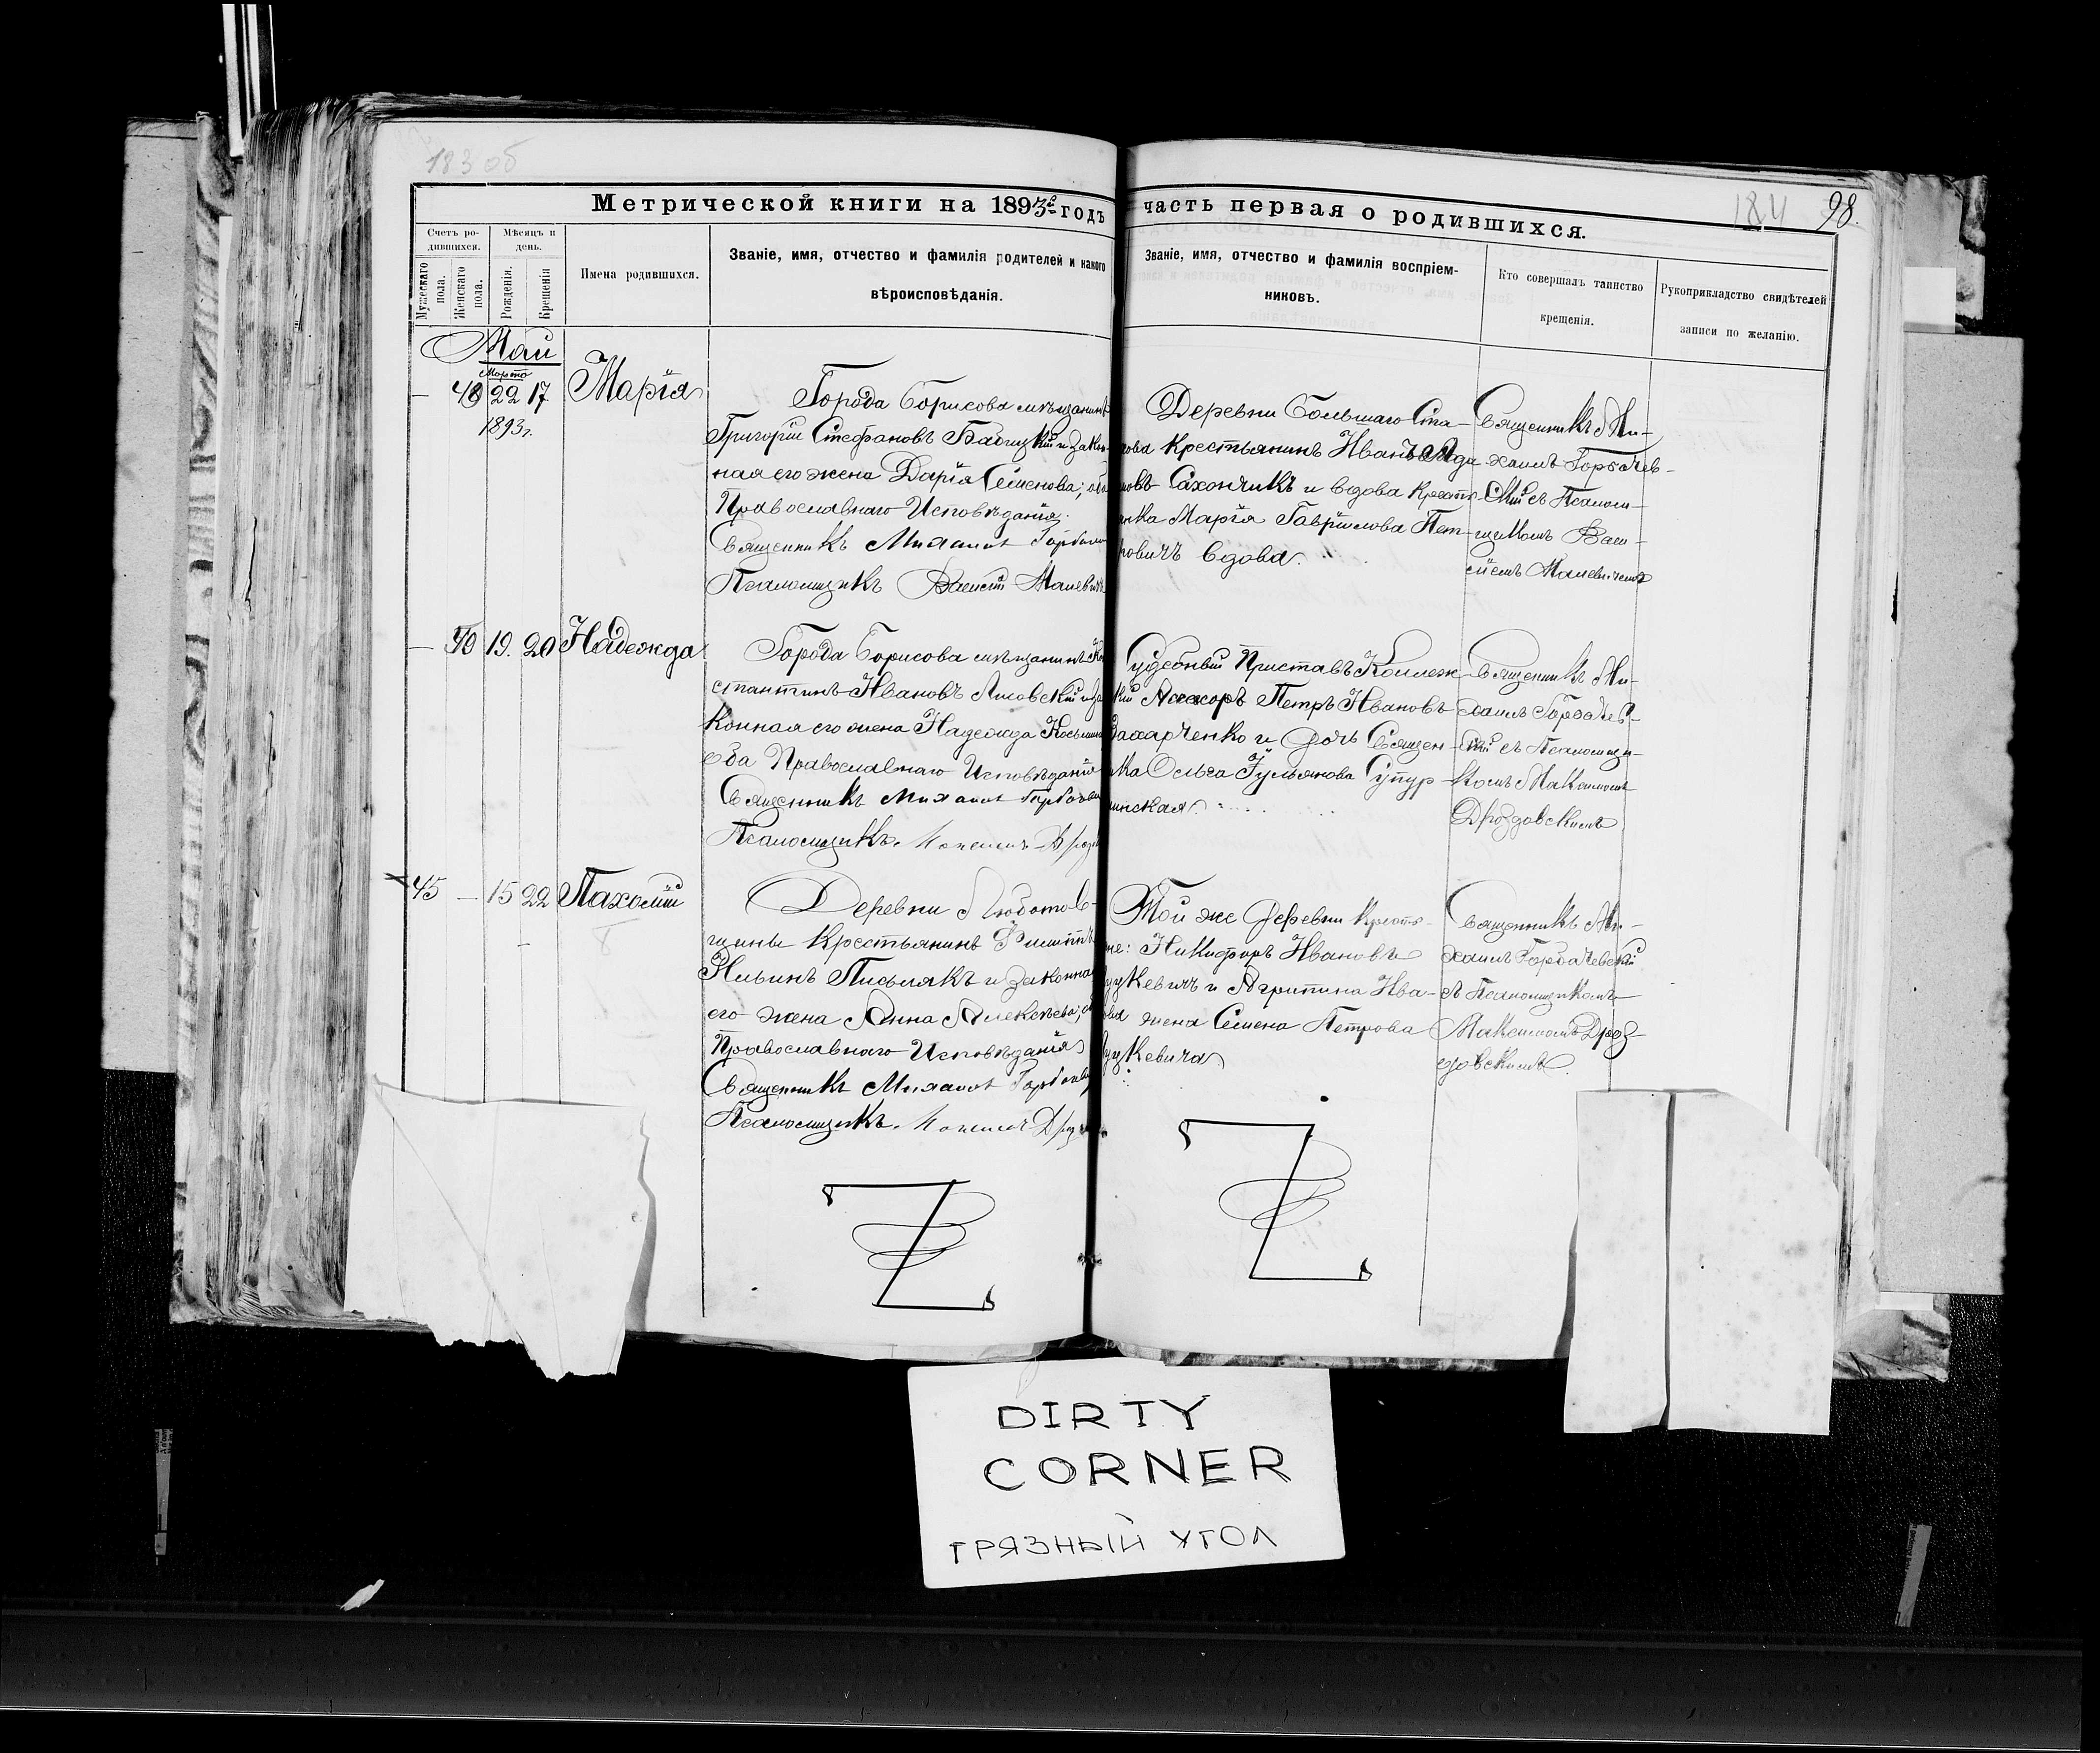 183 об
Метрической книги на 1893й годъ часть первая о родившихся.
184 98.
Счетъ родившихся.
Мужескаго пола.
Женскаго пола.
Мѣсяцъ и день.
Рожденія.
Крещенія
Имена родившихся.
Званіе, имя, отчество и фамилія родителей и какого
вѣроисповѣданія.
Званіе, имя, отчество и фамилія воспріем-
никовъ.
Кто совершалъ таинство
крещенія.
Рукоприкладство свидѣтелей
записи по желанію.
Май
Марта
— 48 22 17 Марія
1893г.
Города Борисова мѣщанинъ
Григорій Стефановъ и закон-
ная его жена Дарія Семенова; оба
Православнаго Исповѣданія.
Священникъ Михаилъ
Псаломщикъ Василій
Деревни Большаго Ста-
хова Крестьянинъ Иванъ Ада
мовъ Сахончикъ и вдова Крестья
нка Марія Гавріилова Пет-
ровичъ вдова.
Священникъ Ми-
хаилъ Горбачев-
скій съ Псалом-
щикомъ Васи-
ліемъ
— 19. 20 Надежда
Города Борисова мѣщанинъ Кон
стантинъ Ивановъ Лисовскій и за
конная его жена Надежда
оба Православнаго Исповѣданія
Священникъ Михаилъ
Псаломщикъ.
Судебный Приставъ Коллеж-
скій Асесоръ Петръ Ивановъ
Захарченко и дочь Священ-
ника Ольга
инская.
Священникъ Ми-
хаилъ Горбачев-
скій съ Псаломщи-
комъ Максимомъ
Дроздовскимъ
45 — 15 22 Пахомій
Деревни Любатов-
щины Крестьянинъ Филиппъ
Ильинъ Письлякъ и законная
его жена Анна Алексѣева; оба
Православнаго Исповѣданія
Священникъ Михаилъ
Псаломщикъ.
Той же деревни Крестья-
не: Никифоръ Ивановъ
и Агрипина Ива-
нова жена Семена Петрова
Священникъ Ми-
хаилъ Горбачевскій
съ Псаломщикомъ
Максимомъ Дроз-
довскимъ
DIRTY
CORNER
ГРЯЗНЫЙ УГОЛ